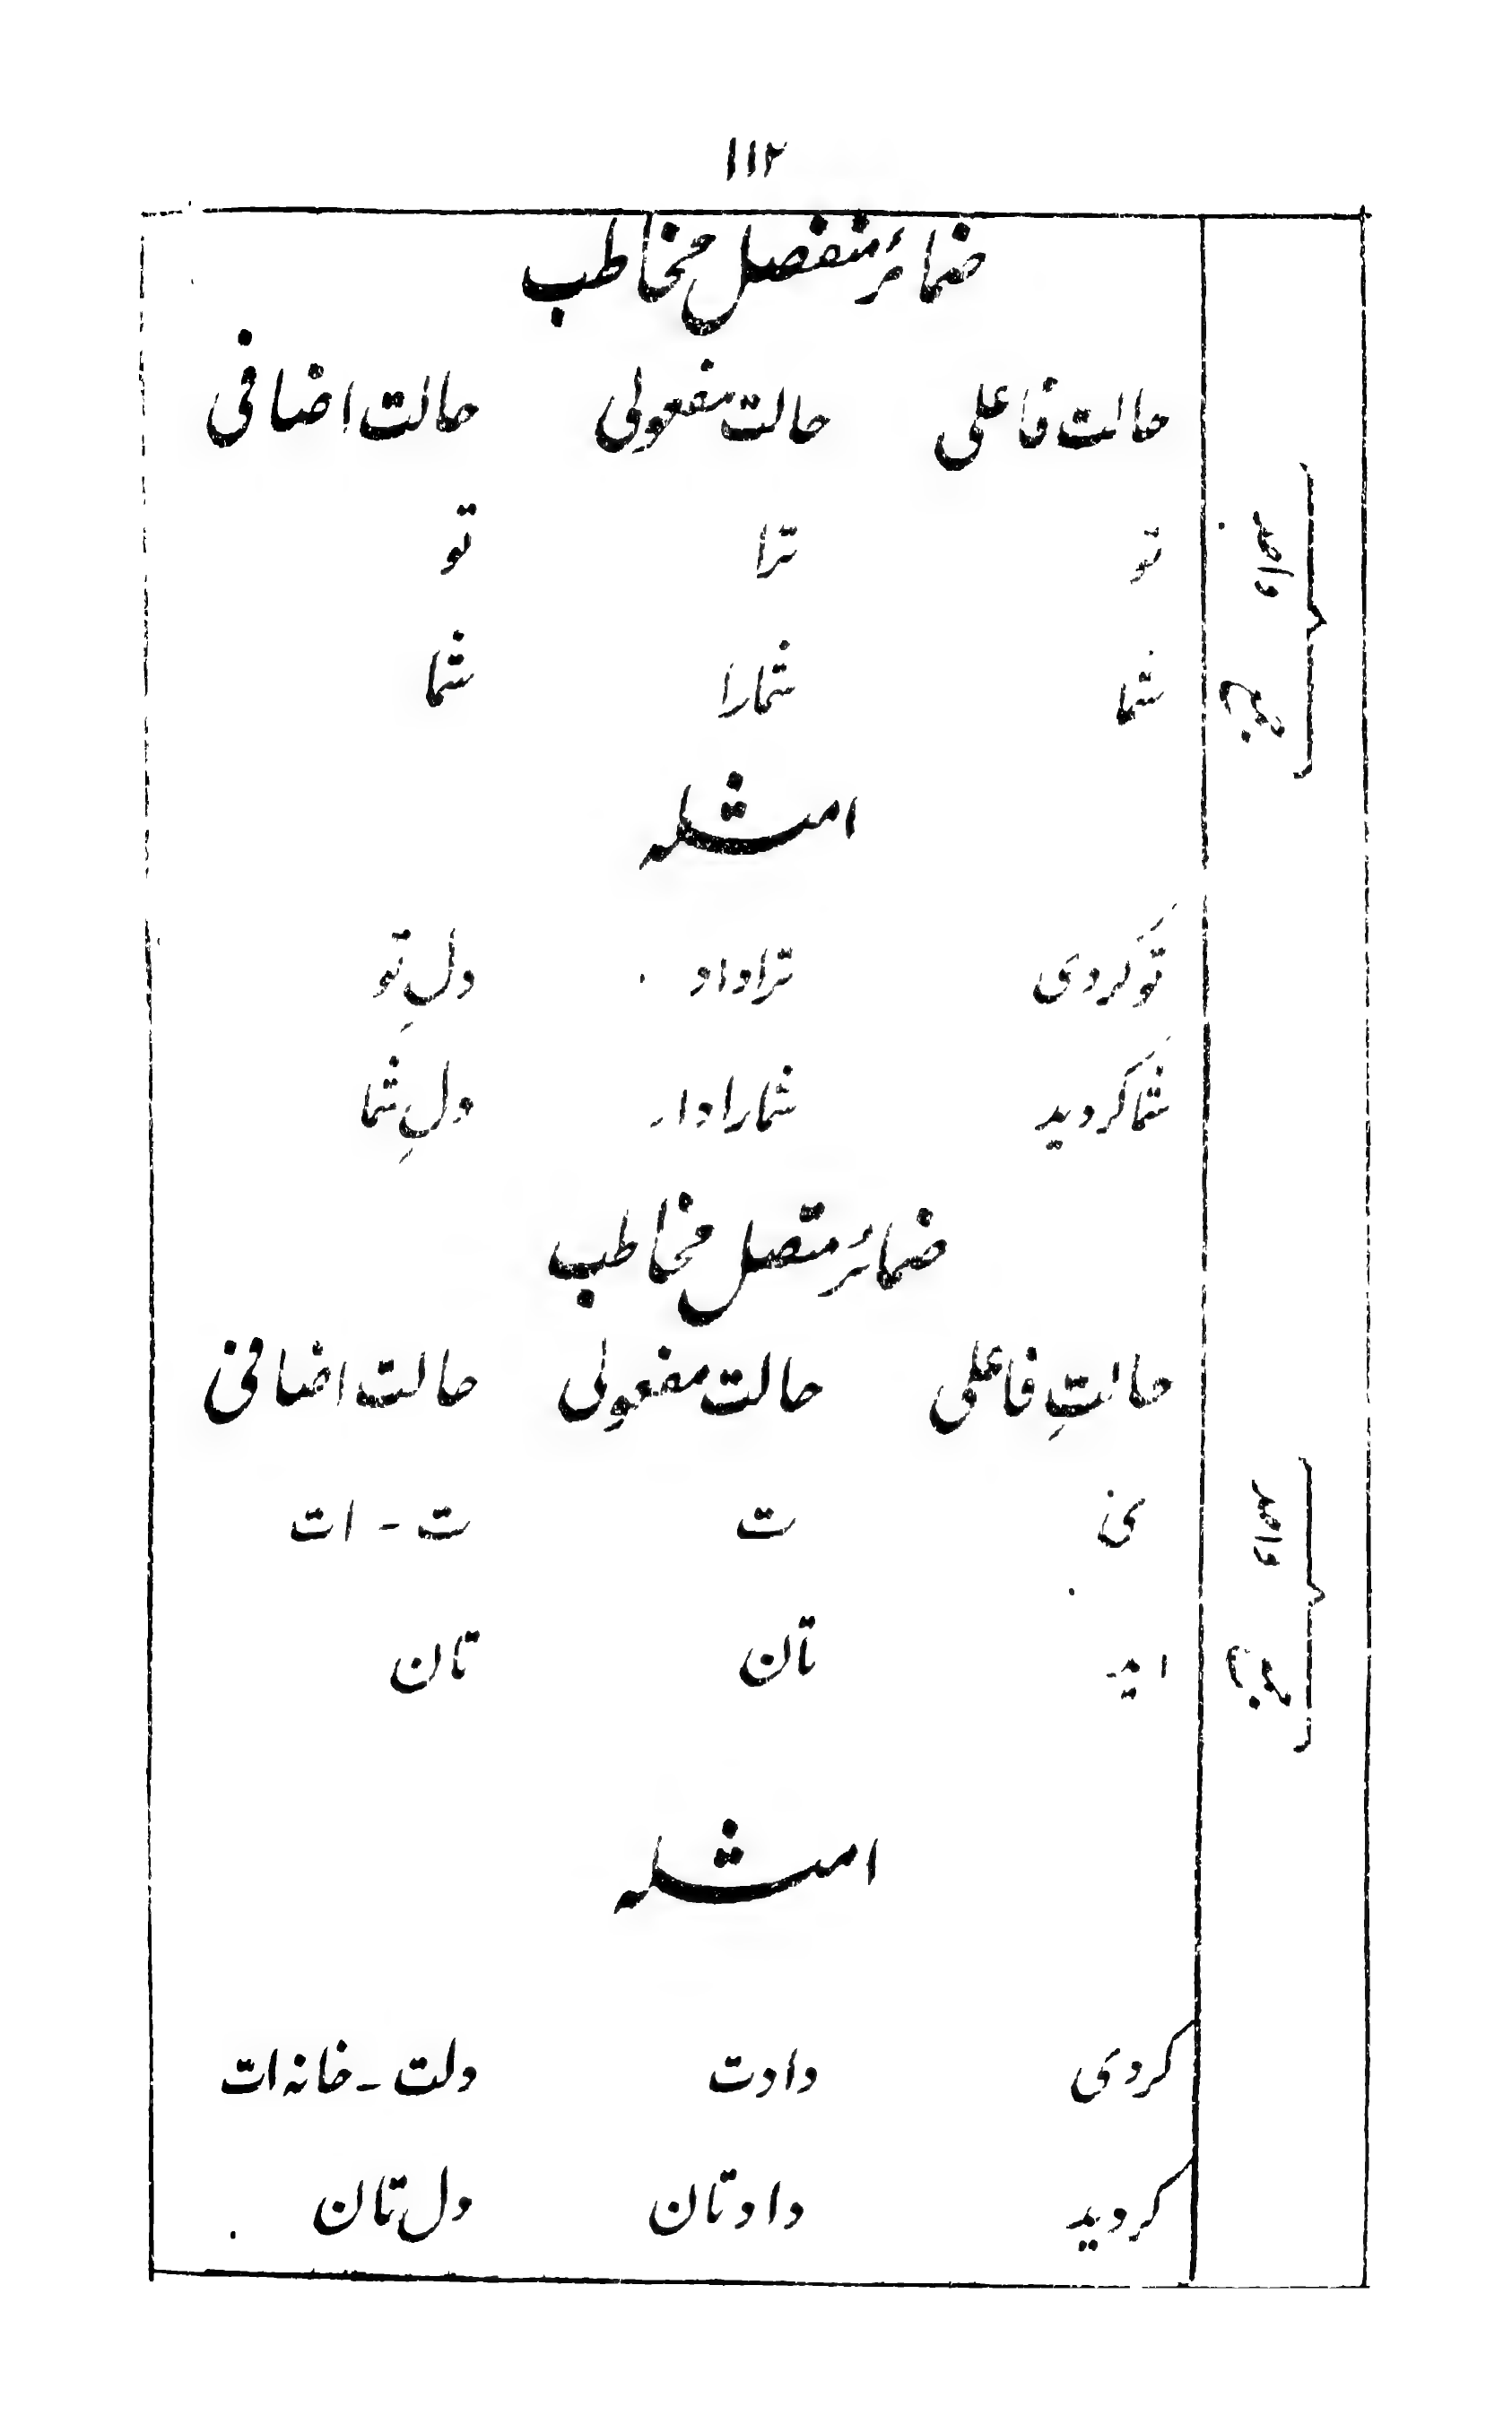 ۱۱۲
ضمائر منفصل مخاطب
حالت فاعلی حالت مفعولی حالت اضافی
واحد تو ترا تو
جمع شما شمارا شما
امثلہ
تو کردی ترا داد دلِ تو
شما کردید شمارا داد دلِ شما
ضمائر متصل مخاطب
حالتِ فاعلی حالت مفعولی حالت اضافی
واحد ی ت ت - ات
جمع اید تان تان
امثلہ
کردی دادت دلت - خانہ ات
کردید داد تان دل تان